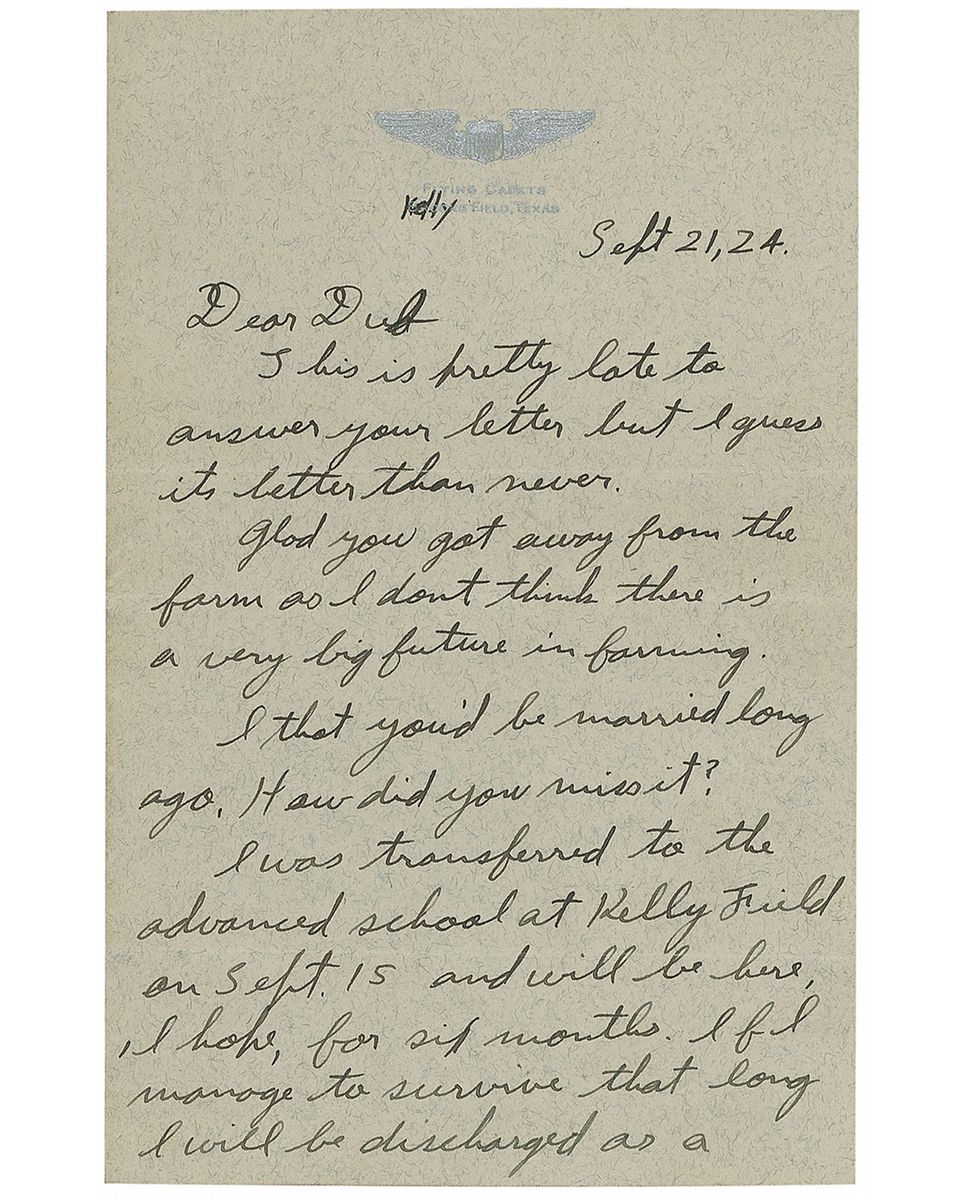 FLYING CADETS
Kelly
BROOKS FIELD, TEXAS
Sept 21, 24.
Dear Dud
This is pretty late to
answer your letter but I guess
its better than never.
Glad you got away from the
farm as I dont think there is
a very big future in farming.
I that you'd be married long
ago. How did you miss it?
I was transferred to the
advanced school at Kelly Field
on Sept. 15 and will be here,
, I hope, for six months. If I
manage to survive that long
I will be discharged as a